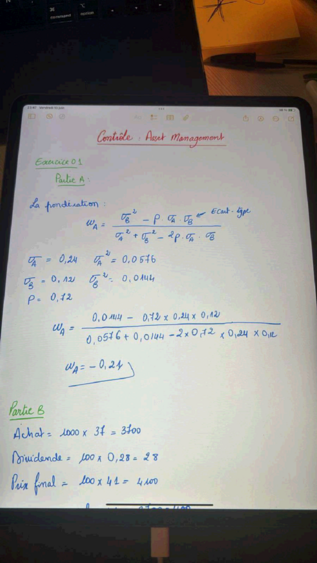 Contrôle : Asset Management
Exercice 01
Partie A :
La pondération :
ω_A = (σ_B² - ρ σ_A σ_B) / (σ_A² + σ_B² - 2ρ·σ_A·σ_B) Ecart-type
σ_A = 0,24 σ_A² = 0,0576
σ_B = 0,12 σ_B² = 0,0144
ρ = 0,72
ω_A = (0,0144 - 0,72 x 0,24 x 0,12) / (0,0576 + 0,0144 - 2 x 0,72 x 0,24 x 0,12)
ω_A = - 0,21
Partie B
Achat = 1000 x 37 = 3700
Dividende = 100 x 0,28 = 28
Prix final = 100 x 41 = 4100